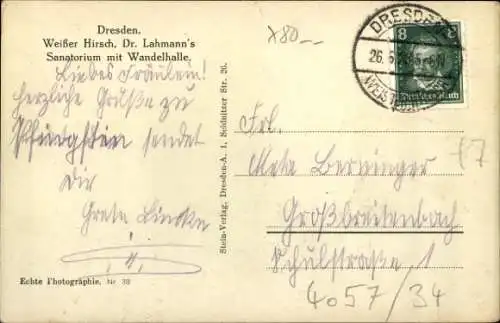 Dresden.
Weißer Hirsch, Dr. Lahmann's
Sanatorium mit Wandelhalle.
Liebes Fräulein!
Herzliche Grüße zu
Pfingsten sendet
Dir
Greta
Echte Photographie, Nr 39
Stein-Verlag, Dresden-A. 1, Seidnitzer Str. 20.
x80--
DRESDEN
26.
8
Deutsches Reich
Frl.
Meta Berninger
Großbreitenbach
Schulstraße 1
4057/34